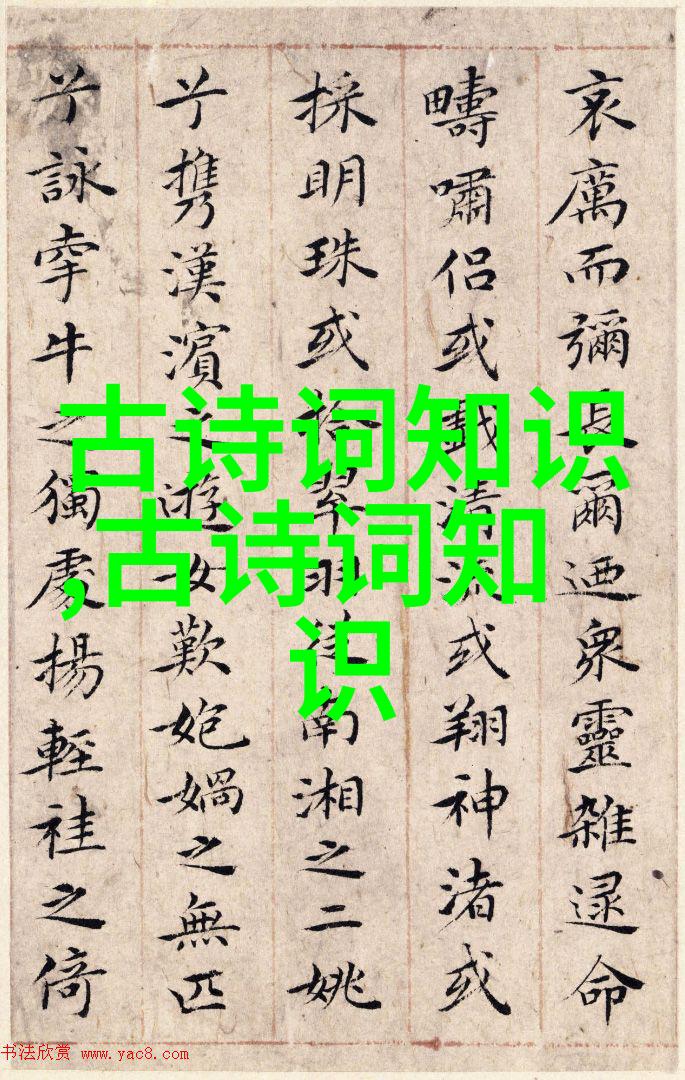 哀厲而彌長爾迺衆靈雜遝命
疇嘯侶或戲清流或翔神渚或
採明珠或拾翠羽從南湘之二姚
兮攜漢濱之遊女歎㚿媧之無匹
兮詠牽牛之獨處揚輕袿之倚
古诗词知识
,古诗词知
识
书法欣赏 www.yac8.com